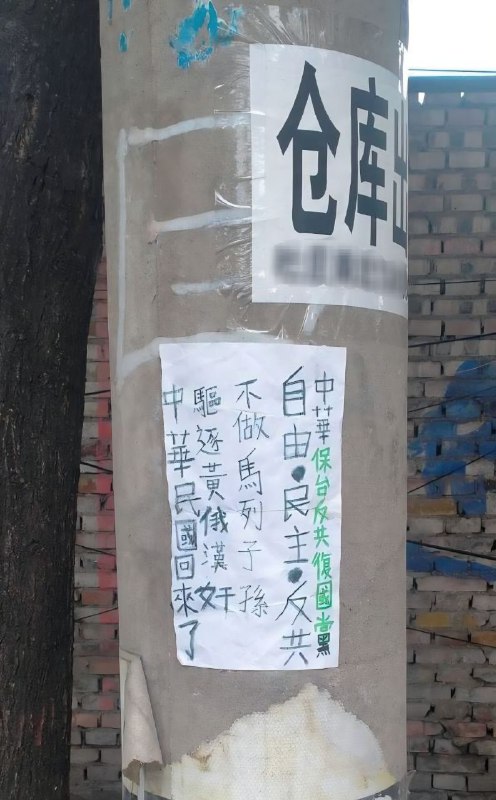 仓库出
中華保台反共復國黨
自由•民主•反共
不做馬列子孫
驅逐黃俄漢奸
中華民國回來了